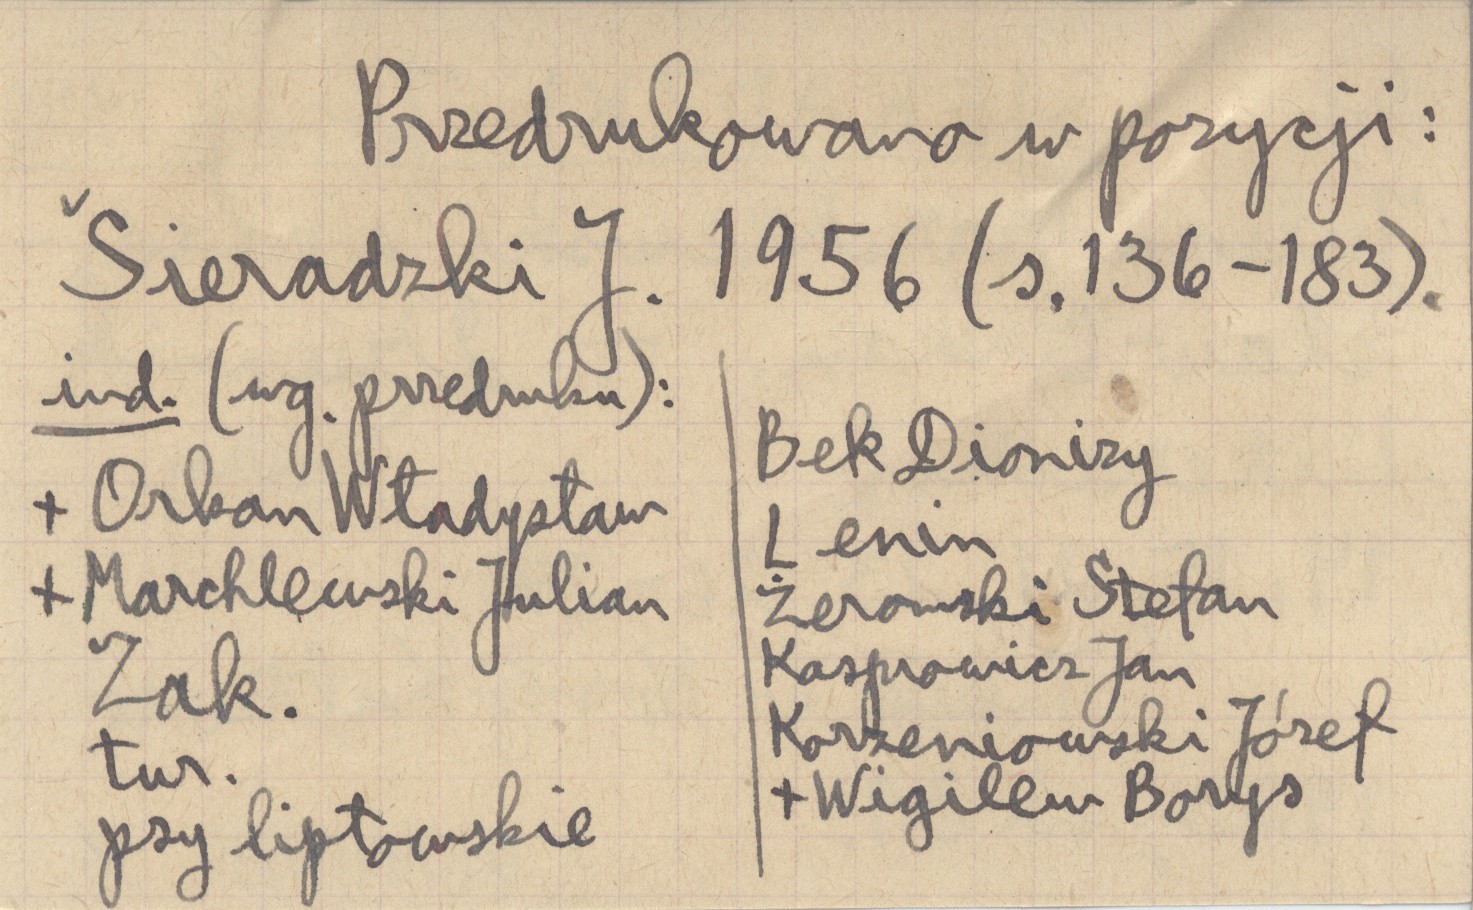 Przedrukowano w pozycji:
Sieradzki J. 1956 (s. 136-183).
ind. (wg. przedruku):
+ Orkan Władysław
+ Marchlewski Julian
Zak.
tur.
psy liptowskie
Bek Dionizy
Lenin
Żeromski Stefan
Kasprowicz Jan
Korzeniowski Józef
+ Wigilew Borys